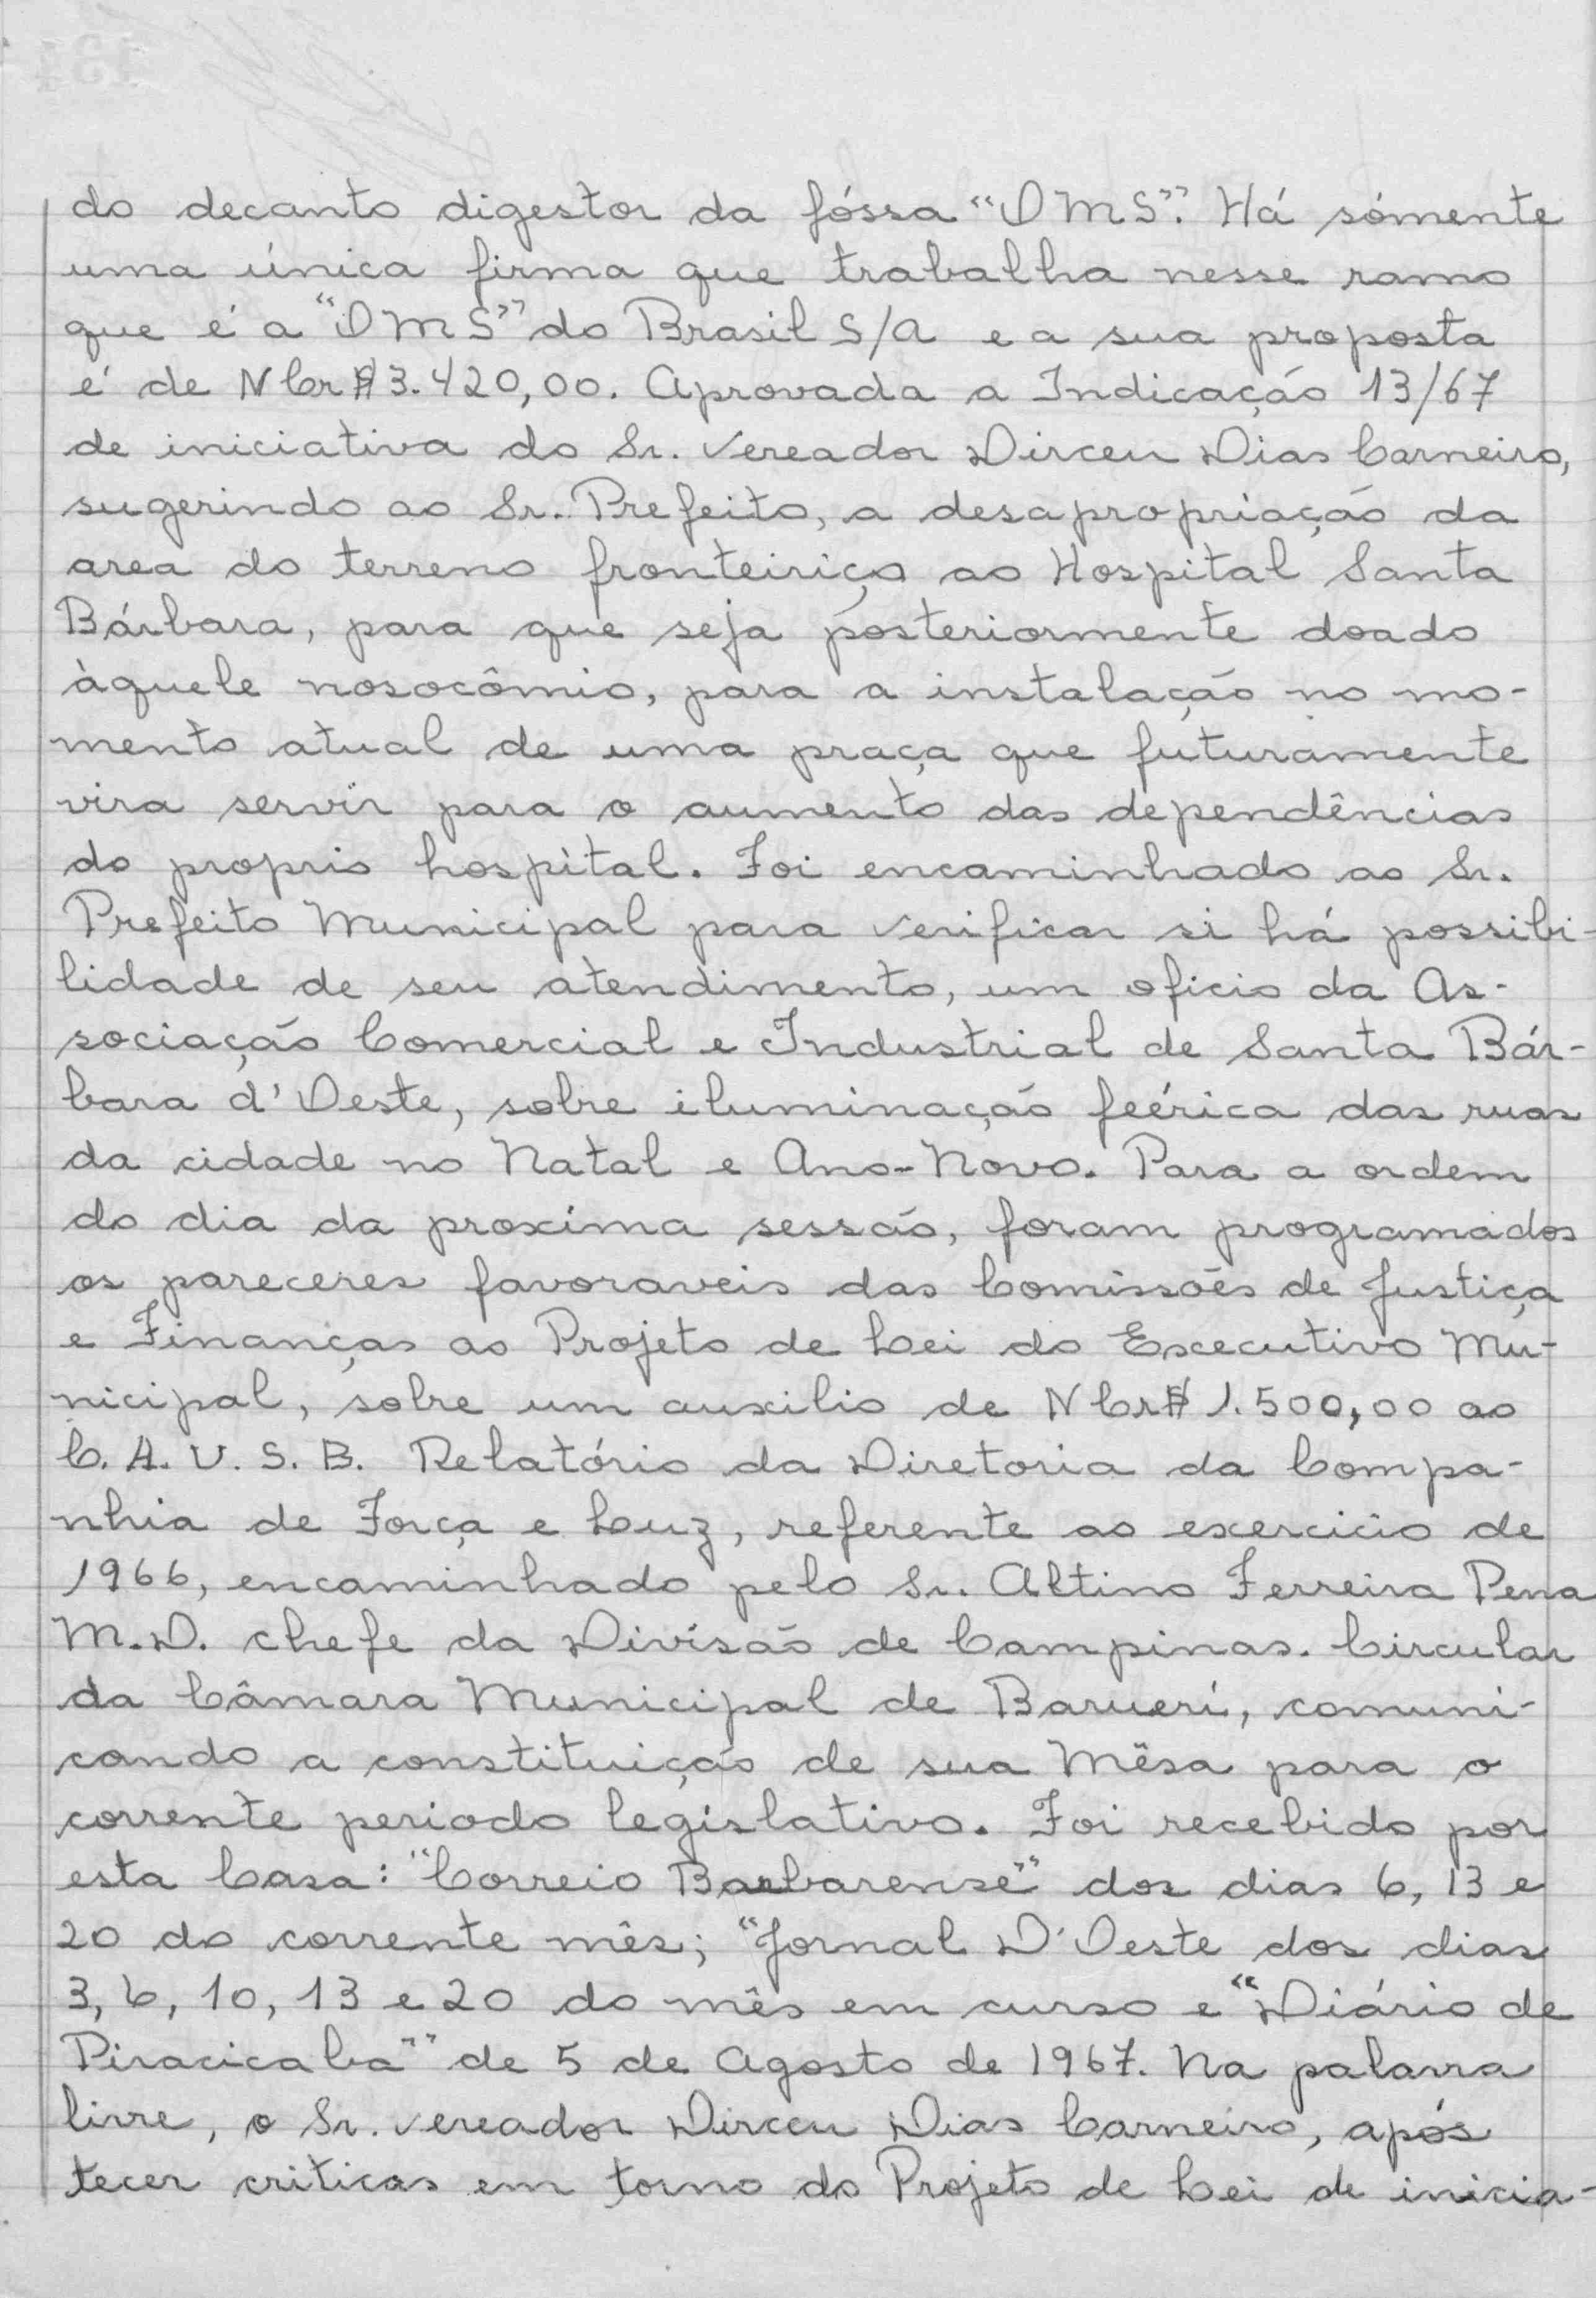 do decanto digestor da fóssa "OMS". Há sómente
uma única firma que trabalha nesse ramo
que é a "OMS" do Brasil S/A e a sua proposta
é de NCr$ 3.420,00. Aprovada a Indicação 13/67
de iniciativa do Sr. Vereador Dirceu Dias Carneiro,
sugerindo ao Sr. Prefeito, a desapropriação da
area do terreno fronteiriço ao Hospital Santa
Bárbara, para que seja posteriormente doado
àquele nosocômio, para a instalação no mo-
mento atual de uma praça que futuramente
vira servir para o aumento das dependências
do proprio hospital. Foi encaminhado ao Sr.
Prefeito Municipal para verificar si há possibi-
lidade de seu atendimento, um oficio da As-
sociação Comercial e Industrial de Santa Bár-
bara d'Oeste, sobre iluminação feérica das ruas
da cidade no Natal e Ano-Novo. Para a ordem
do dia da proxima sessão, foram programados
os pareceres favoraveis das Comissões de Justiça
e Finanças ao Projeto de Lei do Executivo Mu-
nicipal, sobre um auxilio de NCr$ 1.500,00 ao
C. A. U. S. B. Relatório da Diretoria da Compa-
nhia de Força e Luz, referente ao exercicio de
1966, encaminhado pelo Sr. Altino Ferreira Pena
M.D. chefe da Divisão de Campinas. Circular
da Câmara Municipal de Barueri, comuni-
cando a constituição de sua Mêsa para o
corrente periodo legislativo. Foi recebido por
esta Casa: "Correio Barbarense" dos dias 6, 13 e
20 do corrente mês; "Jornal D'Oeste dos dias
3, 6, 10, 13 e 20 do mês em curso e "Diário de
Piracicaba" de 5 de Agosto de 1967. Na palavra
livre, o Sr. Vereador Dirceu Dias Carneiro, após
tecer criticas em torno do Projeto de Lei de inicia-